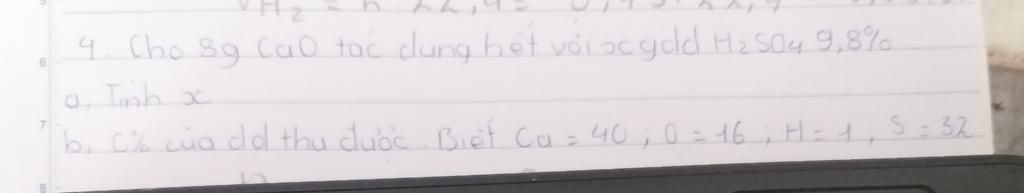 VH2 = n . 22,4 =
4. Cho 8g CaO tác dụng hết với x g dd H2SO4 9,8%
a, Tính x
b, C% của dd thu được. Biết Ca = 40 ; O = 16 ; H = 1 ; S = 32